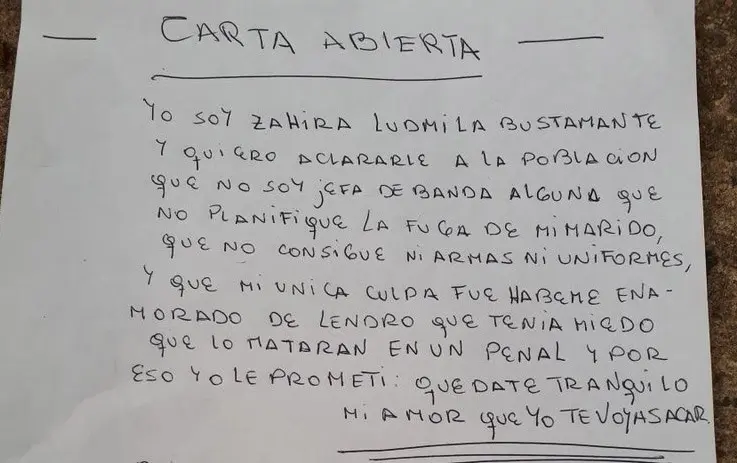 CARTA ABIERTA
YO SOY ZAHIRA LUDMILA BUSTAMANTE
Y QUIERO ACLARARLE A LA POBLACION
QUE NO SOY JEFA DE BANDA ALGUNA QUE
NO PLANIFIQUE LA FUGA DE MI MARIDO,
QUE NO CONSIGUE NI ARMAS NI UNIFORMES,
Y QUE MI UNICA CULPA FUE HABEME ENA-
MORADO DE LENDRO QUE TENIA MIEDO
QUE LO MATARAN EN UN PENAL Y POR
ESO YO LE PROMETI: QUEDATE TRANQUILO
MI AMOR QUE YO TE VOY A SACAR.